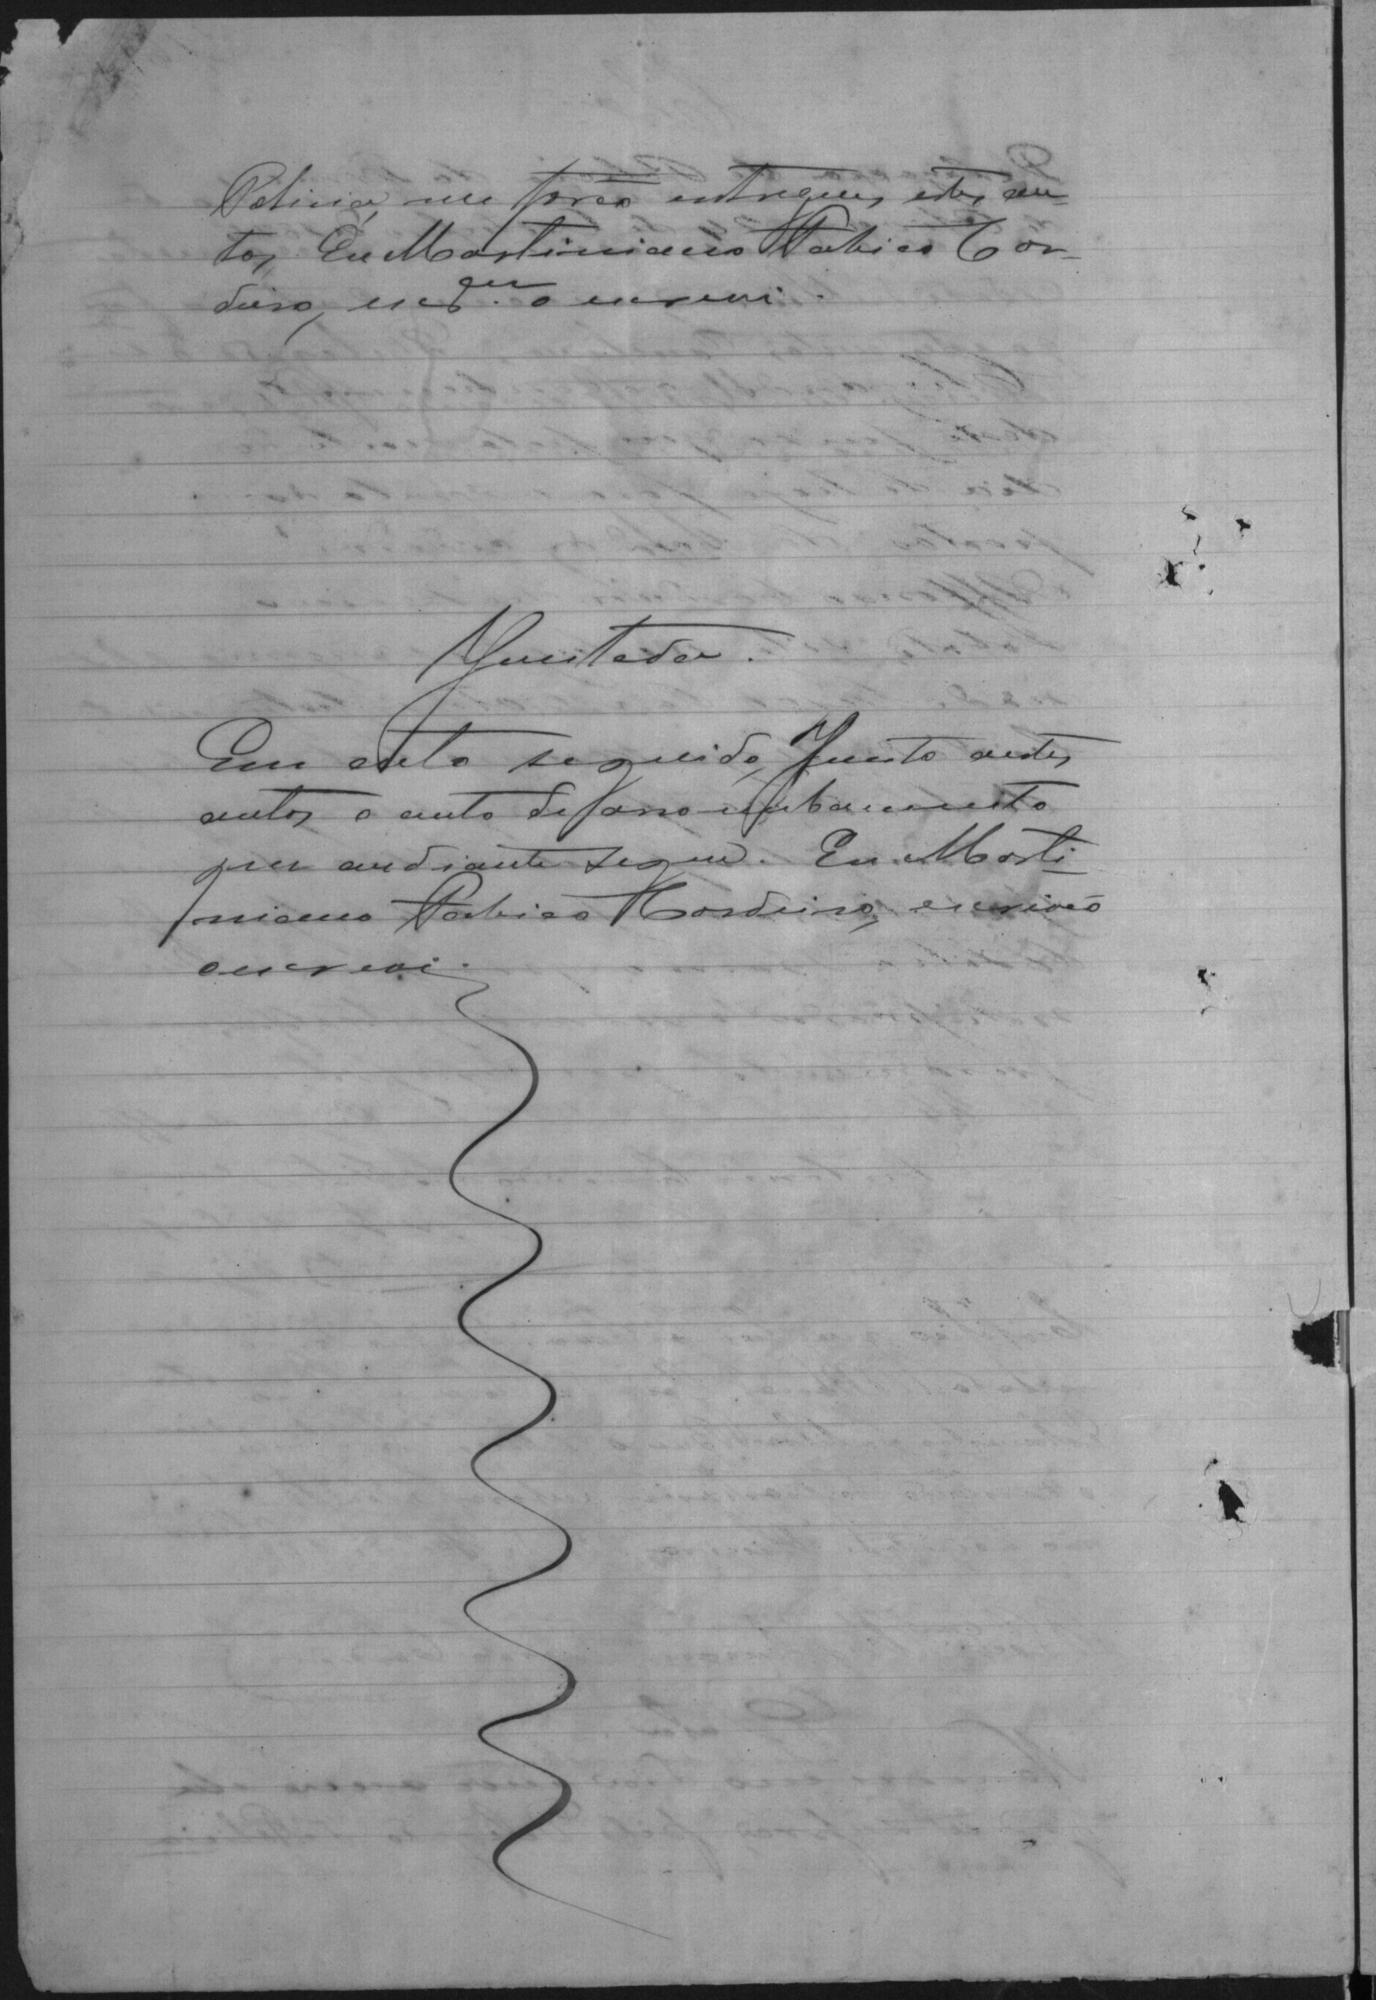 Policia, me forão entregues estes au-
tos, Eu Martiniano Fabião Cor-
deiro, que o escrevi.
Juntada.
Em acto seguido, Junto a estes
autos o auto de arrombamento
que a diante segue. Eu Marti-
niano Fabião Cordeiro, escrivão
o escrevi.